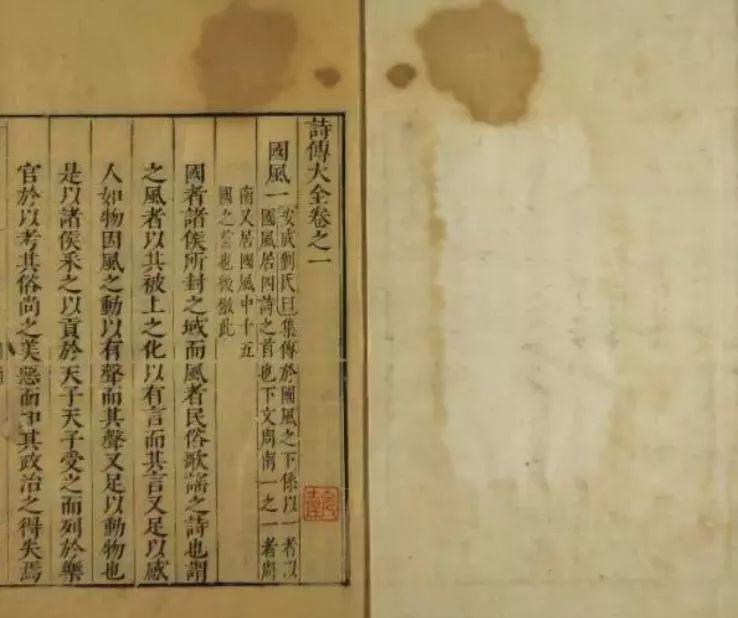 詩傳大全卷之一
國風一
安成劉氏曰集傳於國風之下係以一者以
國風居四詩之首也下文周南一之一者周
南又居國風中十五
國之首也後倣此
國者諸侯所封之域而風者民俗歌謠之詩也謂
之風者以其被上之化以有言而其言又足以感
人如物因風之動以有聲而其聲又足以動物也
是以諸侯采之以貢於天子天子受之而列於樂
官於以考其俗尚之美惡而知其政治之得失焉